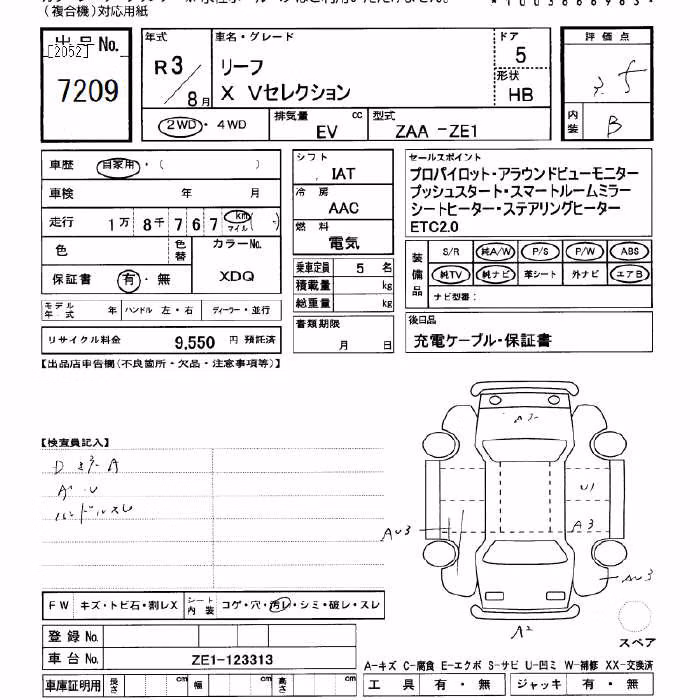 （複合機）対応用紙
出品No. [2052] 7209
年式 R3/8月
車名・グレード
リーフ
X Vセレクション
ドア 5
形状 HB
評価点
内装 B
2WD・4WD
排気量 EV cc
型式 ZAA -ZE1
車歴 自家用・( )
車検 年 月
走行 1万 8千 7 6 7 km マイル ( )
色
色替
カラーNo. XDQ
保証書 有・無
モデル年式 年
ハンドル 左・右
ディーラー・並行
リサイクル料金 9,550 円 預託済
シフト IAT
冷房 AAC
燃料 電気
乗車定員 5 名
積載量 kg
総重量 kg
書類期限 月 日
セールスポイント
プロパイロット・アラウンドビューモニター
プッシュスタート・スマートルームミラー
シートヒーター・ステアリングヒーター
ETC2.0
装備品
S/R 純A/W P/S P/W ABS
純TV 純ナビ 革シート 外ナビ エアB
ナビ型番：
後日品
充電ケーブル・保証書
【出品店申告欄(不良箇所・欠品・注意事項等)】
【検査員記入】
ハンドルスレ
A2
U1
A3
AU3
AU3
A2
スペア
FW キズ・トビ石・割レX
シート内装 コゲ・穴・汚レ・シミ・破レ・スレ
登録No.
車台No. ZE1-123313
車庫証明用 長さ cm 幅 cm 高さ cm
A-キズ C-腐食 E-エクボ S-サビ U-凹ミ W-補修 XX-交換済
工具 有・無 ジャッキ 有・無